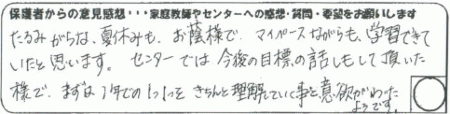 保護者からの意見感想･･･家庭教師やセンターへの感想･質問･要望をお願いします
たるみがちな、夏休みも、お蔭様で、マイペースながらも、学習できて
いたと思います。 センターでは 今後の目標の話しもして頂いた
様で、まずは1年での1つ1つを きちんと理解していく事と、意欲がわいた
ようです。